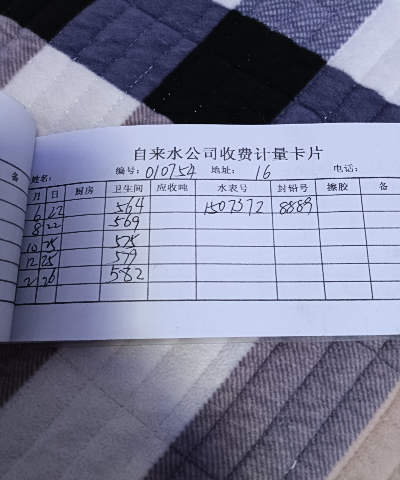 自来水公司收费计量卡片
编号: 010754 地址: 16 电话:
姓名:
备 月 日 厨房 卫生间 应收吨 水表号 封铅号 擦胶 备
6 22 564 1507372 8889
8 22 569
10 25 575
12 25 579
2 26 582